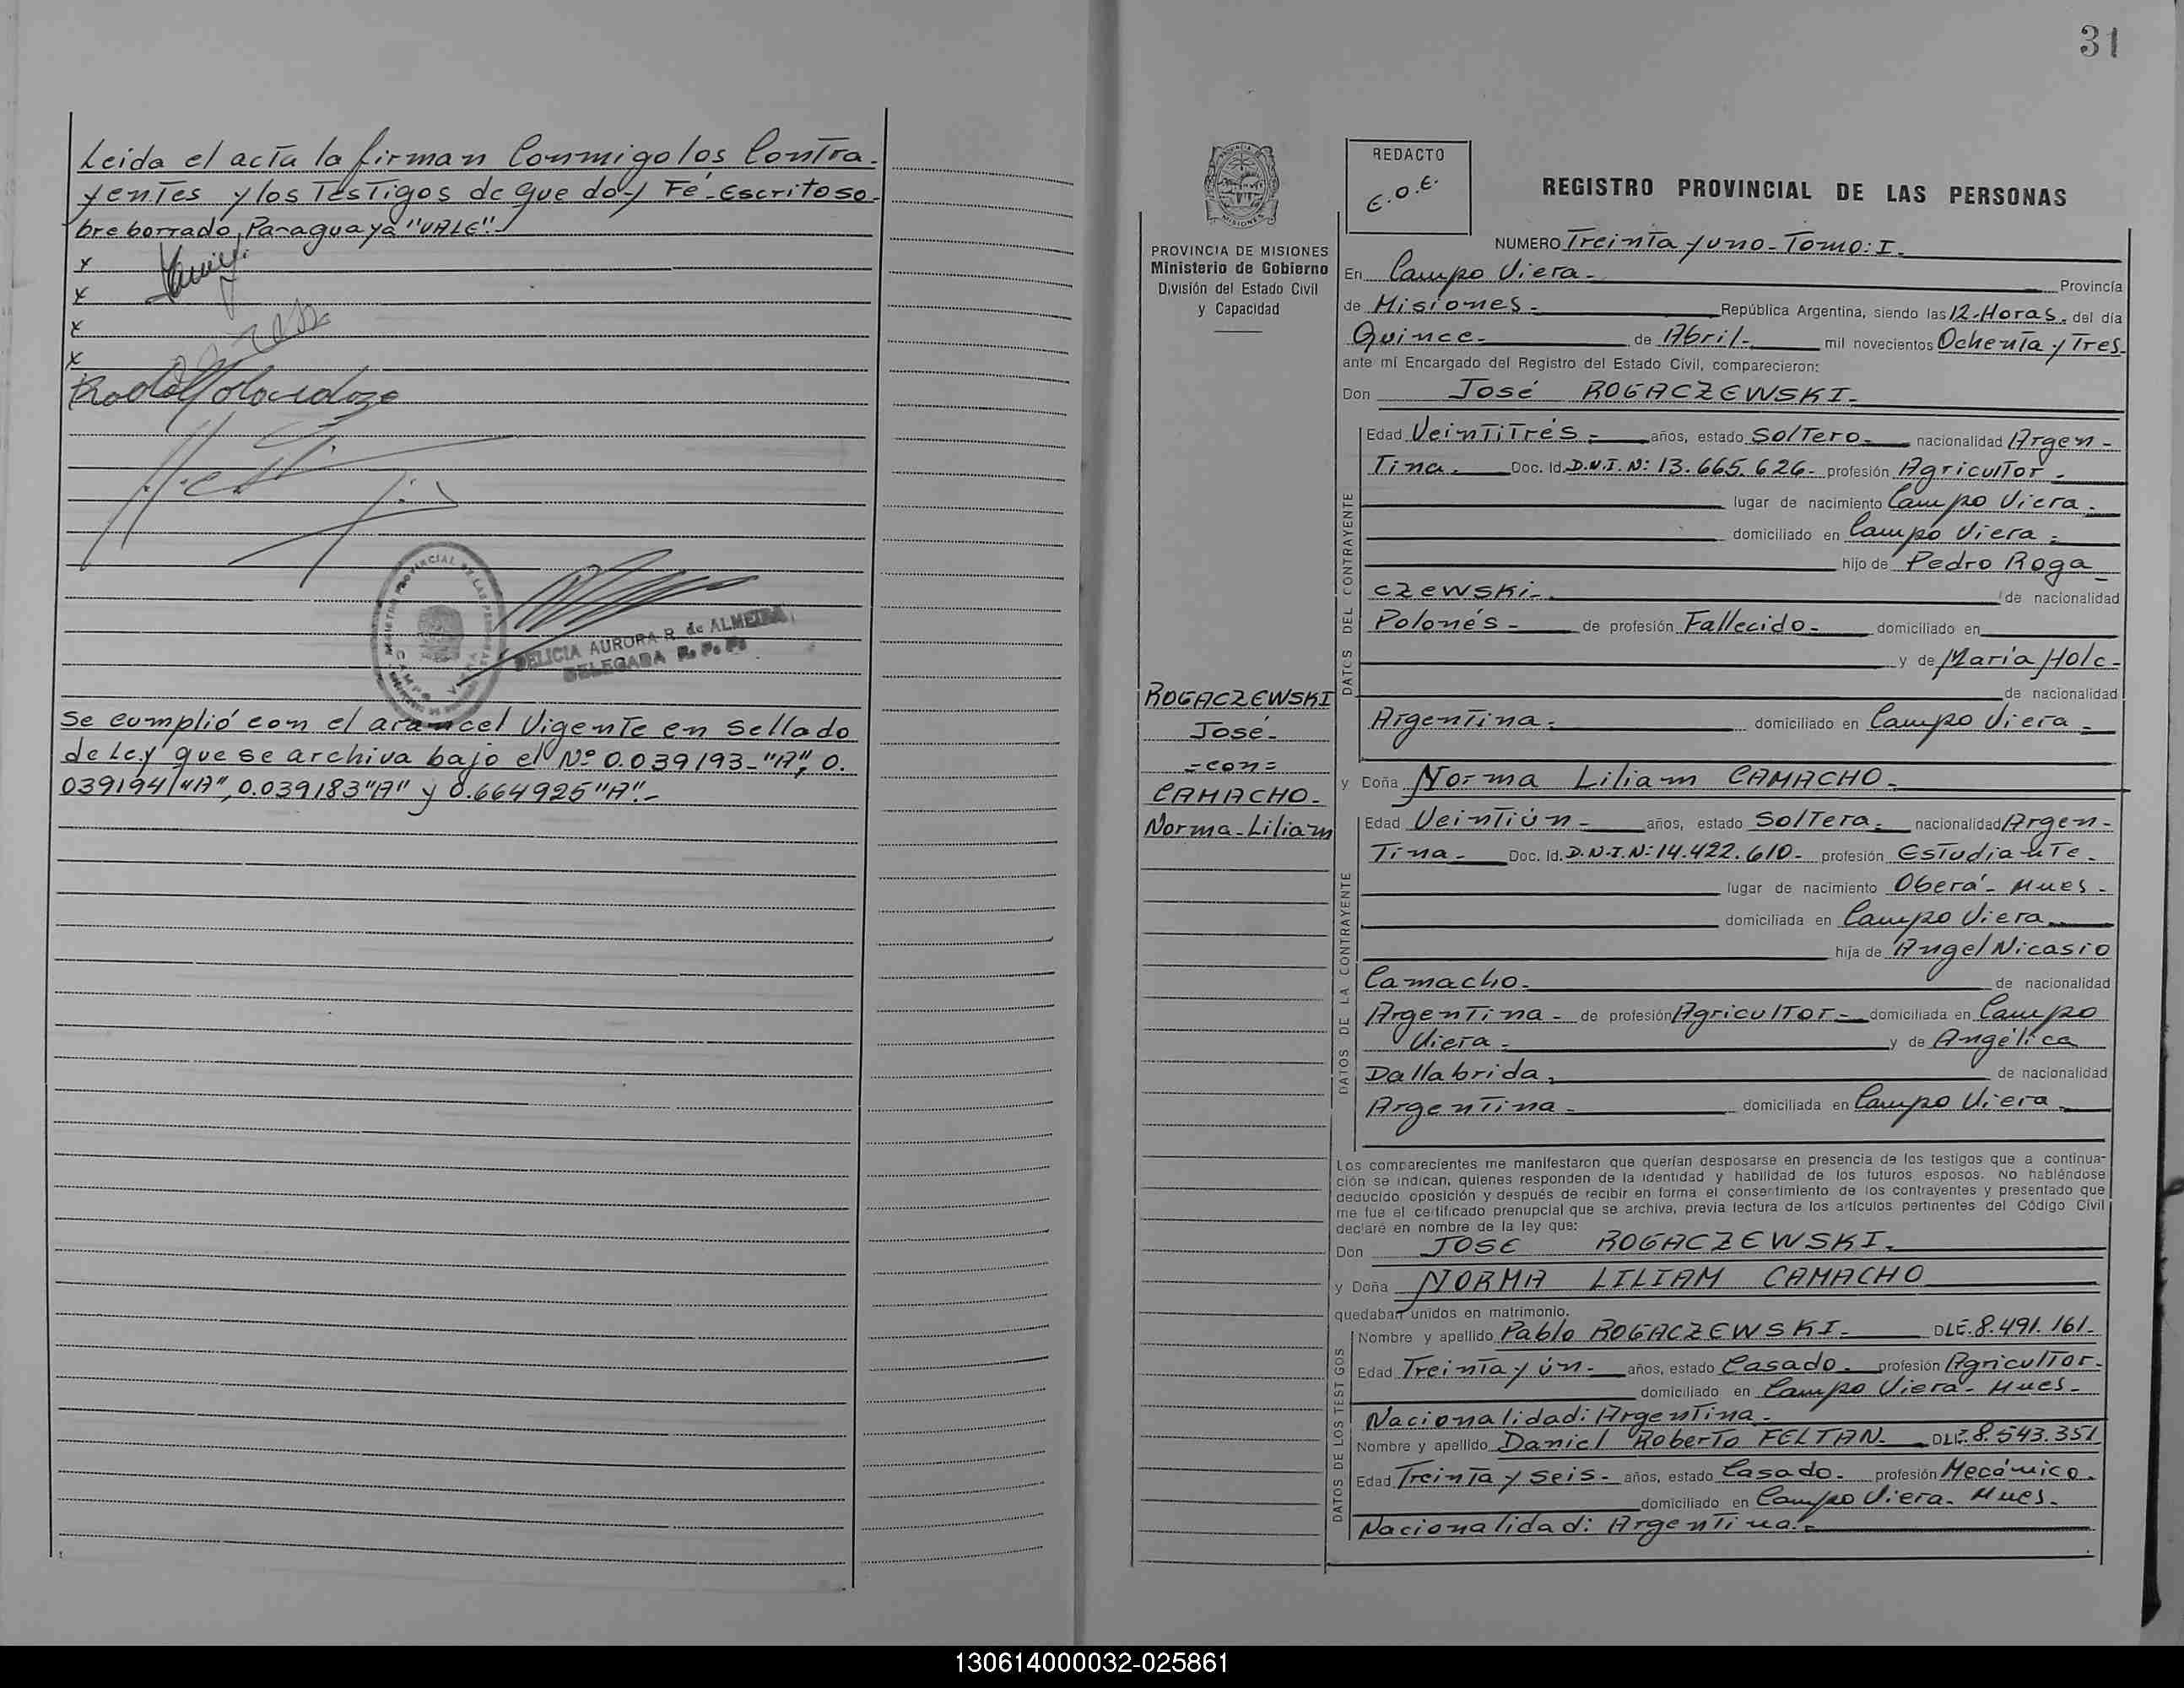 Leida el acta la firman Conmigo los Contra-
yentes y los Testigos de que doy Fé-Escrito so-
bre borrado, Paraguaya "VALE".-
x
x
x
x
DELICIA AURORA R. de ALMEIDA
DELEGADA R. P. P.
Se cumplió con el arancel Vigente en Sellado
de Ley que se archiva bajo el Nº 0.039193-"A", 0.
039194 "A", 0.039183 "A" y 0.664925 "A".-
31
PROVINCIA DE MISIONES
Ministerio de Gobierno
División del Estado Civil
y Capacidad
ROGACZEWSKI
José-
=con=
CAMACHO-
Norma-Liliam
REDACTO
E.O.E.
REGISTRO PROVINCIAL DE LAS PERSONAS
NUMERO Treinta y uno-Tomo: I.
En Campo Viera- Provincia
de Misiones- República Argentina, siendo las 12-Horas- del día
Quince- de Abril- mil novecientos Ochenta y Tres-
ante mi Encargado del Registro del Estado Civil, comparecieron:
Don José ROGACZEWSKI-
DATOS DEL CONTRAYENTE
Edad Veintitrés- años, estado Soltero- nacionalidad Argen-
tina- Doc. Id. D.N.I. Nº: 13.665.626- profesión Agricultor-
lugar de nacimiento Campo Viera-
domiciliado en Campo Viera-
hijo de Pedro Roga-
czewski- de nacionalidad
Polonés- de profesión Fallecido- domiciliado en
y de María Holc-
de nacionalidad
Argentina- domiciliado en Campo Viera-
y Doña Norma Liliam CAMACHO-
DATOS DE LA CONTRAYENTE
Edad Veintiún- años, estado Soltera- nacionalidad Argen-
tina- Doc. Id. D.N.I. Nº: 14.422.610- profesión Estudiante-
lugar de nacimiento Oberá- Mnes-
domiciliada en Campo Viera
hija de Angel Nicasio
Camacho- de nacionalidad
Argentina- de profesión Agricultor- domiciliada en Campo
Viera- y de Angélica
Dallabrida, de nacionalidad
Argentina- domiciliada en Campo Viera-
Los comparecientes me manifestaron que querían desposarse en presencia de los testigos que a continua-
ción se indican, quienes responden de la identidad y habilidad de los futuros esposos. No habiéndose
deducido oposición y después de recibir en forma el consentimiento de los contrayentes y presentado que
me fue el certificado prenupcial que se archiva, previa lectura de los artículos pertinentes del Código Civil
declaré en nombre de la ley que:
Don JOSE ROGACZEWSKI-
y Doña NORMA LILIAM CAMACHO
quedaban unidos en matrimonio.
DATOS DE LOS TESTIGOS
Nombre y apellido Pablo ROGACZEWSKI- DLE. 8.491.161-
Edad Treinta y ún- años, estado Casado- profesión Agricultor-
domiciliado en Campo Viera- Mnes-
Nacionalidad: Argentina-
Nombre y apellido Daniel Roberto FELTAN- DLE. 8.543.351
Edad Treinta y seis- años, estado Casado- profesión Mecánico-
domiciliado en Campo Viera- Mnes-
Nacionalidad: Argentina-
130614000032-025861